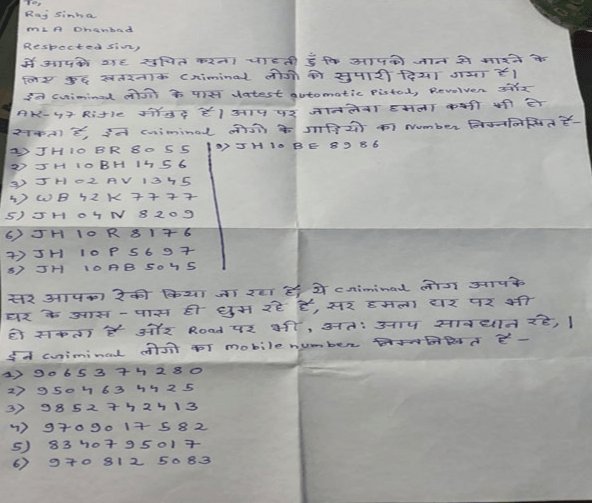 To,
Raj Sinha
MLA Dhanbad
Respected sir,
मैं आपको यह सुचित करना चाहती हूँ कि आपको जान से मारने के
लिए कुछ खतरनाक Criminal लोगों को सुपारी दिया गया है।
इन Criminal लोगों के पास latest automatic Pistol, Revolver और
AK-47 Rifle मौजुद है। आप पर जानलेवा हमला कभी भी हो
सकता है, इन criminal लोगों के गाड़ियों का Number निम्नलिखित है-
1) JH10 BR 8055 9) JH10 BE 8986
2) JH 10 BH 1456
3) JH 02 AV 1345
4) WB 42K 7777
5) JH 04 N 8209
6) JH 10 R 8176
7) JH 10 P 5697
8) JH 10AB 5045
सर आपका रेकी किया जा रहा है, ये criminal लोग आपके
घर के आस-पास ही घुम रहे हैं, सर हमला घर पर भी
हो सकता है और Road पर भी, अतः आप सावधान रहे,।
इन criminal लोगों का mobile number निम्नलिखित है-
1) 9065374280
2) 9504634425
3) 9852742413
4) 9709017582
5) 8340795017
6) 9708125083